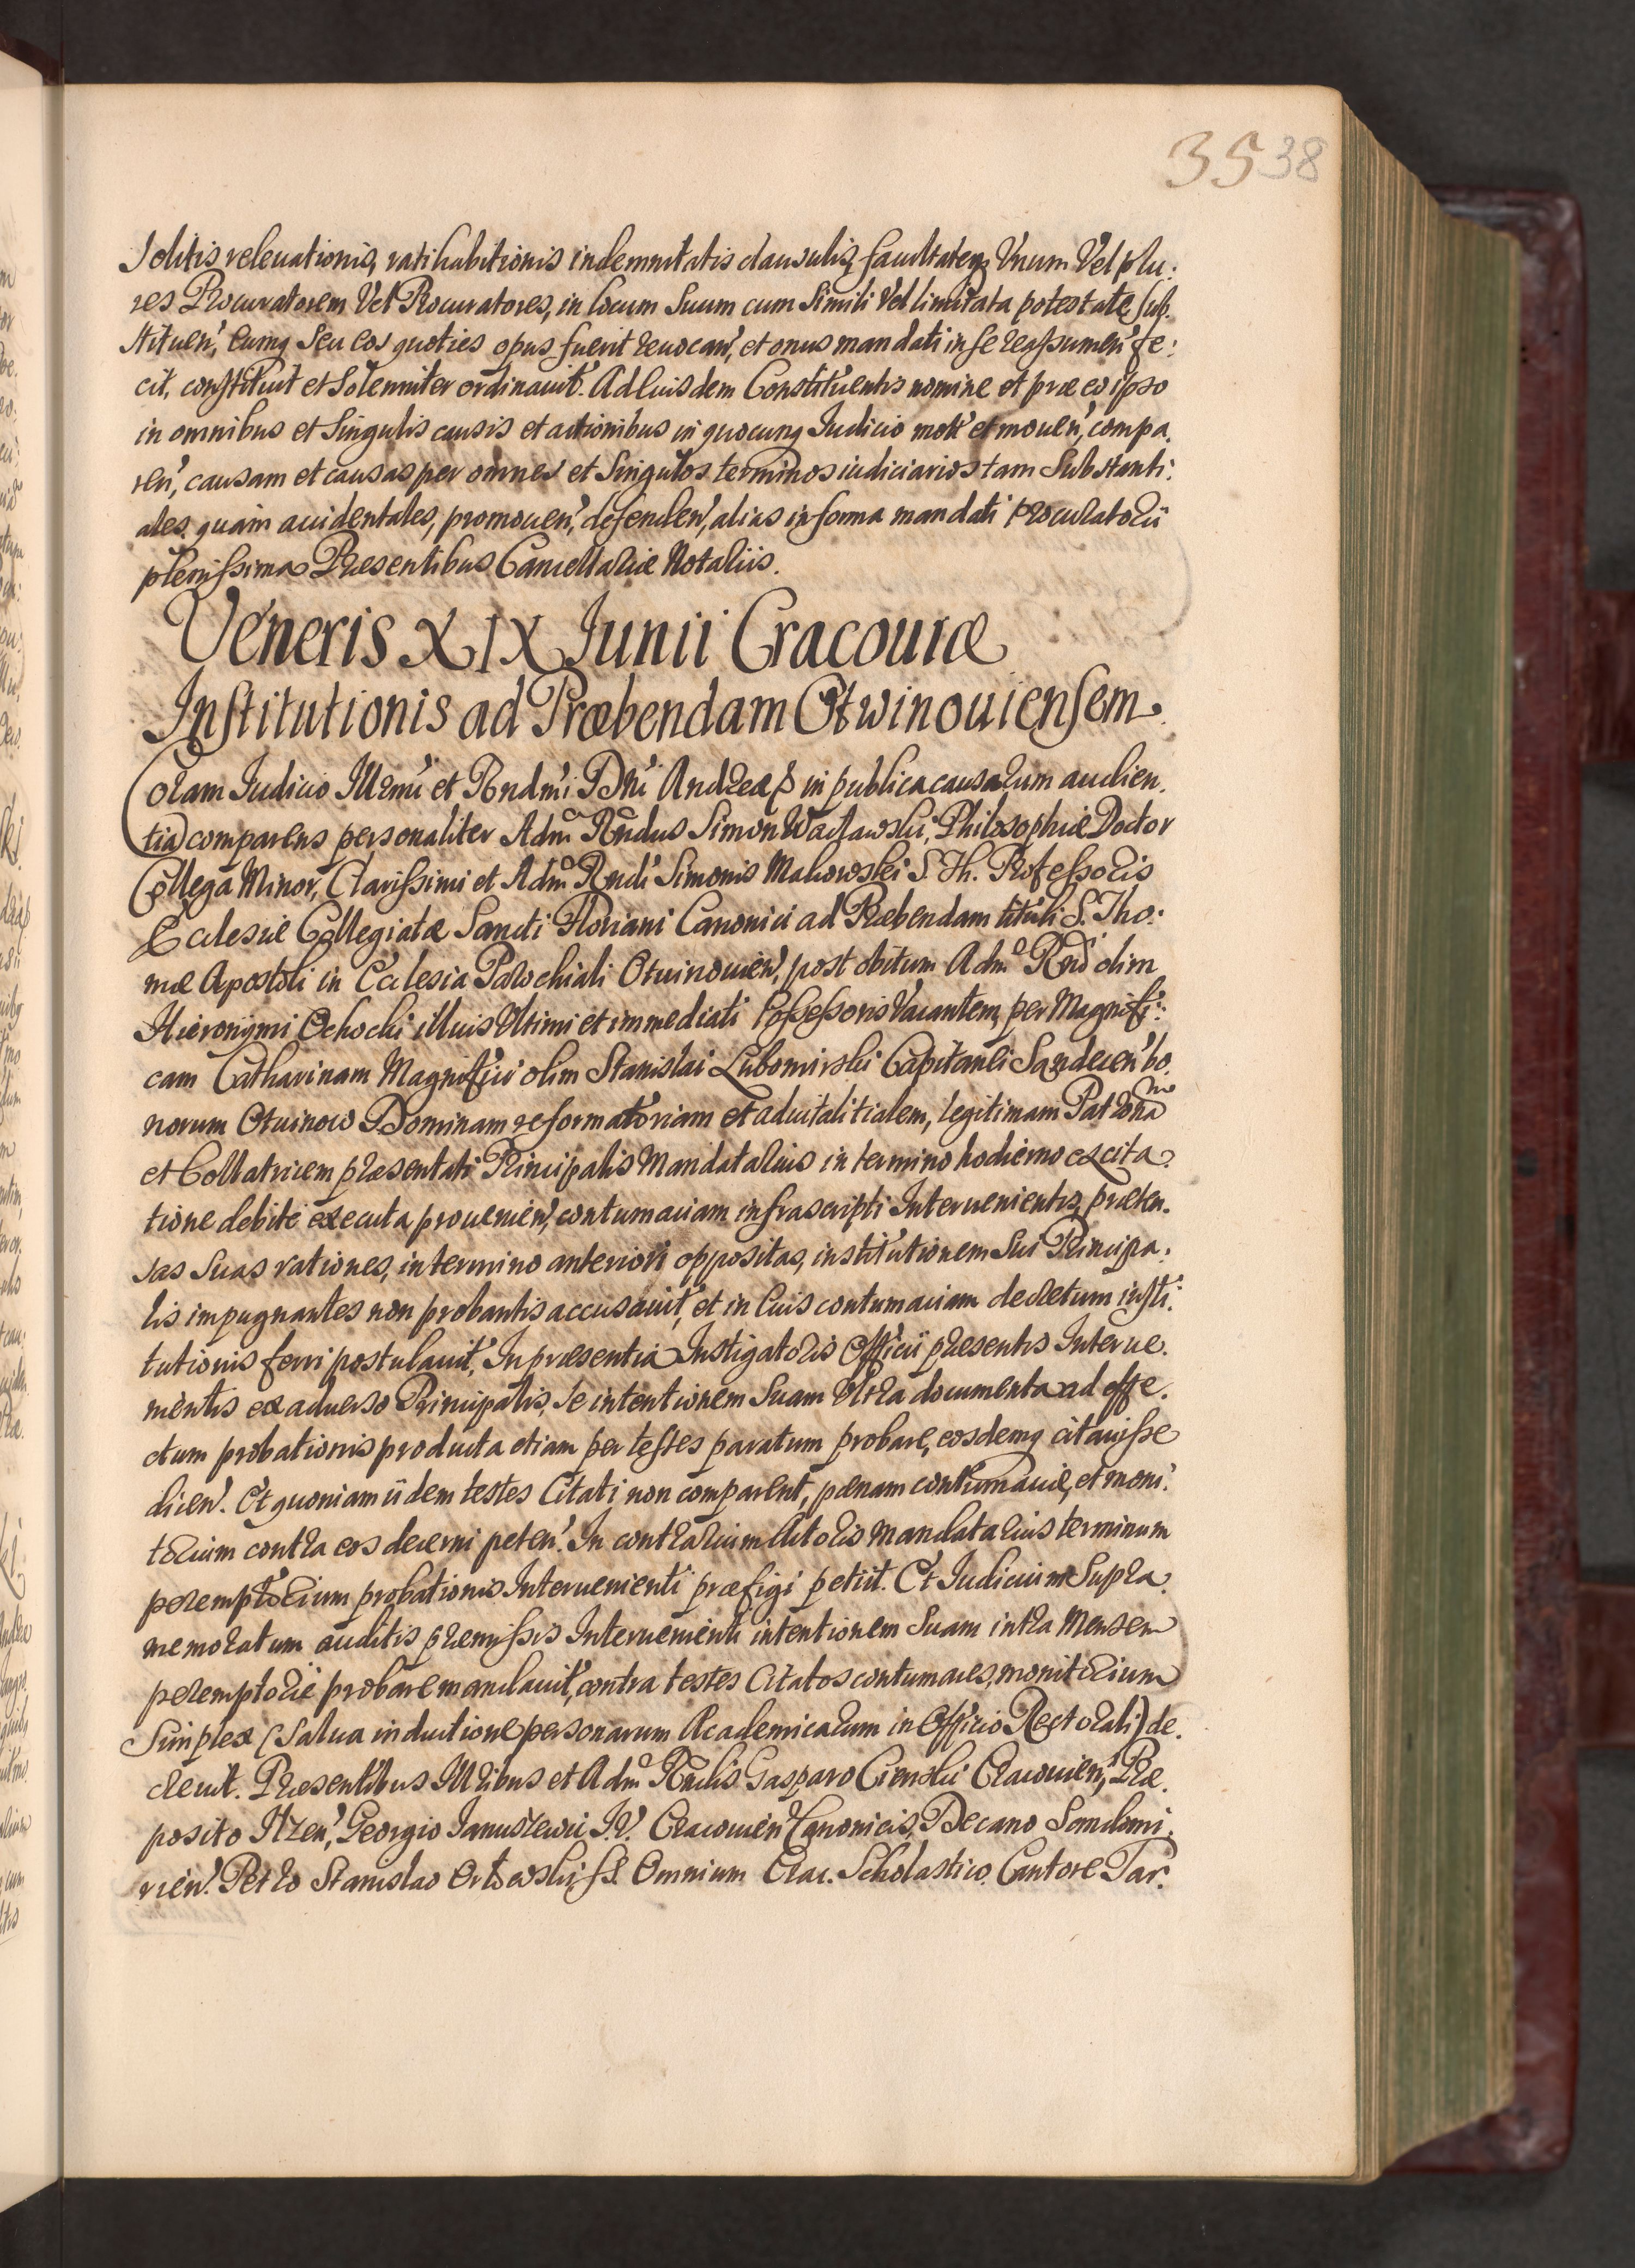 35 38
Solitis releuationis, ratihabitionis indemnitatis clausulis, facultateq Vnum Vel plu:
res Procuratorem Vel Procuratores, in locum Suum cum Simili Vel limitata potestate Sub.
stituen', Eumq Seu eos quoties opus fuerit reuocan', et onus mandati in se reassumen' fe:
cit, constituit et Solenniter ordinauit. Ad Cuisdem Constituentis nomine et pro eo ipso
in omnibus et Singulis causis et actionibus in quocunq Iudicio moti' et mouen', compa.
ren', causam et causas per omnes et Singulos terminos iudiciarios tam Substanti:
ales quam accidentales, promouen', defenden', alias in forma mandati Procuratorii
plenissima Præsentibus Cancellariæ Notariis.
Veneris XIX Junii Cracouiæ
Institutionis ad Præbendam Otwinouiensem.
Coram Iudicio Illrmi et Rndmi Dni Andreæ in publica causarum audien.
tia comparens personaliter Adm Rndus Simon Wacławski, Philosophiæ Doctor
Collega Minor, Clarissimi et Adm Rndi Simonis Makowski S. Th. Professoris
Ecclesiæ Collegiatæ Sancti Floriani Canonici ad Præbendam tituli S. Tho:
mæ Apostoli in Ecclesia Parochiali Otuinouien', post obitum Adm Rnd olim
Hieronymi Ochocki illuis Vltimi et immediati Possessoris Vacantem, per Magnifi:
cam Catharinam Magnifici olim Stanislai Lubomirski Capitanei Sandecen' bo.
norum Otuinow Dominam reformatoriam et aduitalitialem, legitimam Patrona
et Collatricem præsentati Principalis Mandatarius in termino hodierno ex cita.
tione debite executa prouenien', contumaciam infrascripti Interuenientis, præten.
sas Suas rationes, in termino anteriori oppositas, institutionem Sui Principa.
lis impugnantes non probantis accusauit, et in Cuis contumaciam decretum insti:
tutionis ferri postulauit, In præsentia Instigatoris Officii præsentis Interue.
nientis ex aduerso Principalis, se intentionem Suam Vltra documenta ad effe.
ctum probationis producta etiam per testes paratum probare, eosdemq citauisse
dicen'. Et quoniam iidem testes Citati non comparent, pœnam contumaciæ, et moni:
torium contra eos decerni peten'. In contrarium Actoris Mandatarius terminum
peremptorium probationis Interuenienti præfigi petiit. Et Iudicium Supra.
memoratum auditis præmissis Interuenienti intentionem Suam intra Mensem
peremptorie probare mandauit, contra testes Citatos contumaces, monitorium
Simplex (Salua inductione personarum Academicarum in Officio Rectorali) de.
creuit. Præsentibus Illribus et Adm Rndis Gasparo Cienski Cracouien', Præ.
posito Ilzen', Georgio Januszewic I.V. Cracouien' Canonicis, Decano Sandomi.
rien'. Petro Stanislao Orłowski, SS. Omnium Crac. Scholastico, Cantore Tar.